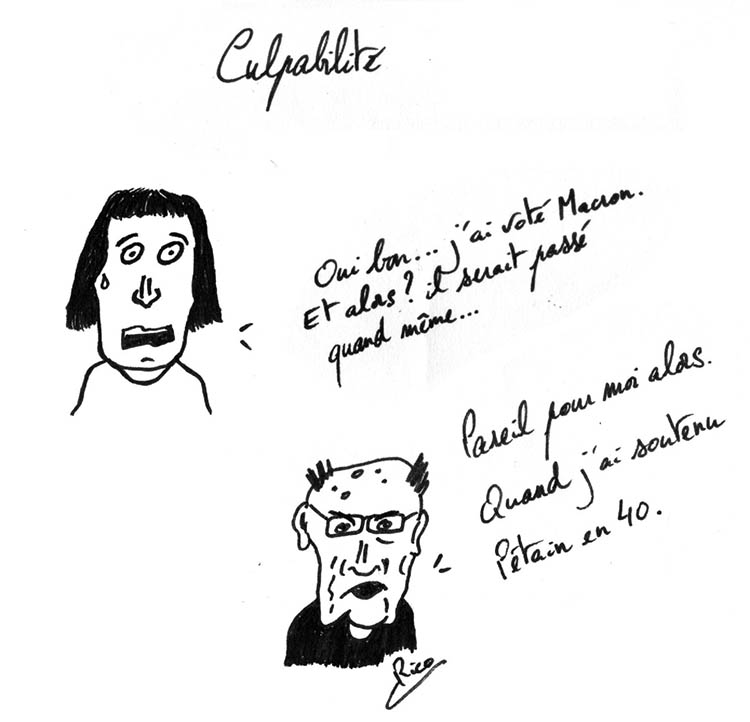 Culpabilité
Oui bon... j'ai voté Macron.
Et alors? il serait passé
quand même...
Pareil pour moi alors.
Quand j'ai soutenu
Pétain en 40.
Rico